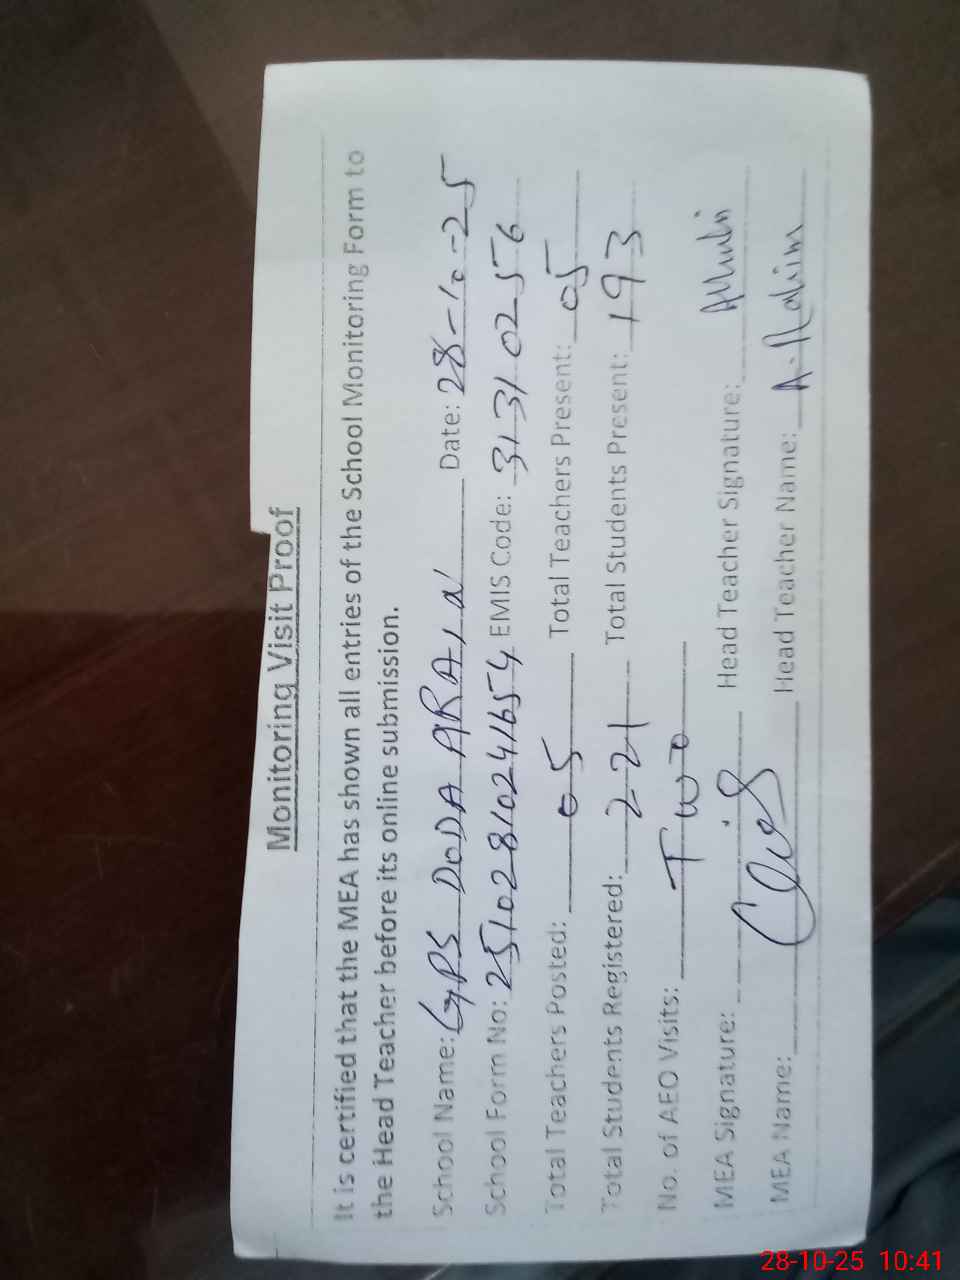 Monitoring Visit Proof
It is certified that the MEA has shown all entries of the School Monitoring Form to
the Head Teacher before its online submission.
School Name: GPS DODA ARAIN Date: 28-10-25
School Form No: 25102810241654 EMIS Code: 31310256
Total Teachers Posted: 05 Total Teachers Present: 05
Total Students Registered: 221 Total Students Present: 193
No. of AEO Visits: Two
MEA Signature: Head Teacher Signature:
MEA Name: Head Teacher Name: A. Rahim
28-10-25 10:41